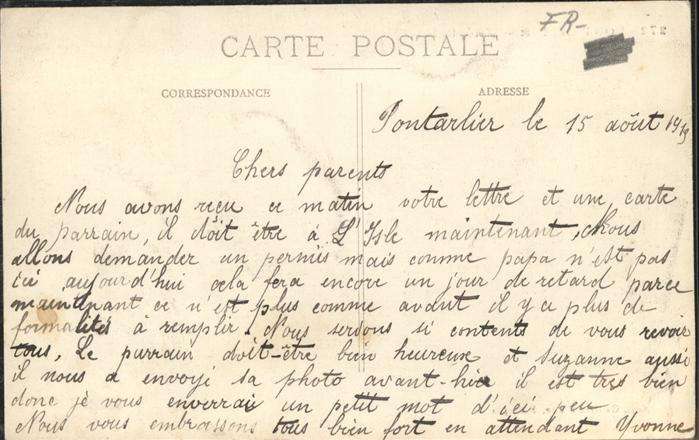 FR-
CARTE POSTALE
CORRESPONDANCE
ADRESSE
Pontarlier le 15 août 1915
Chers parents
Nous avons reçu ce matin votre lettre et une carte
du parrain, il doit être à L'Isle maintenant, Nous
allons demander un permis mais comme papa n'est pas
ici aujourd'hui cela fera encore un jour de retard parce
maintenant ce n'est plus comme avant il y a plus de
formalités à remplir. Nous serions si contents de vous revoir
tous, Le parrain doit-être bien heureux et Suzanne aussi
il nous a envoyé sa photo avant-hier il est très bien
donc je vous enverrai un petit mot d'ici peu
Nous vous embrassons tous bien fort en attendant Yvonne